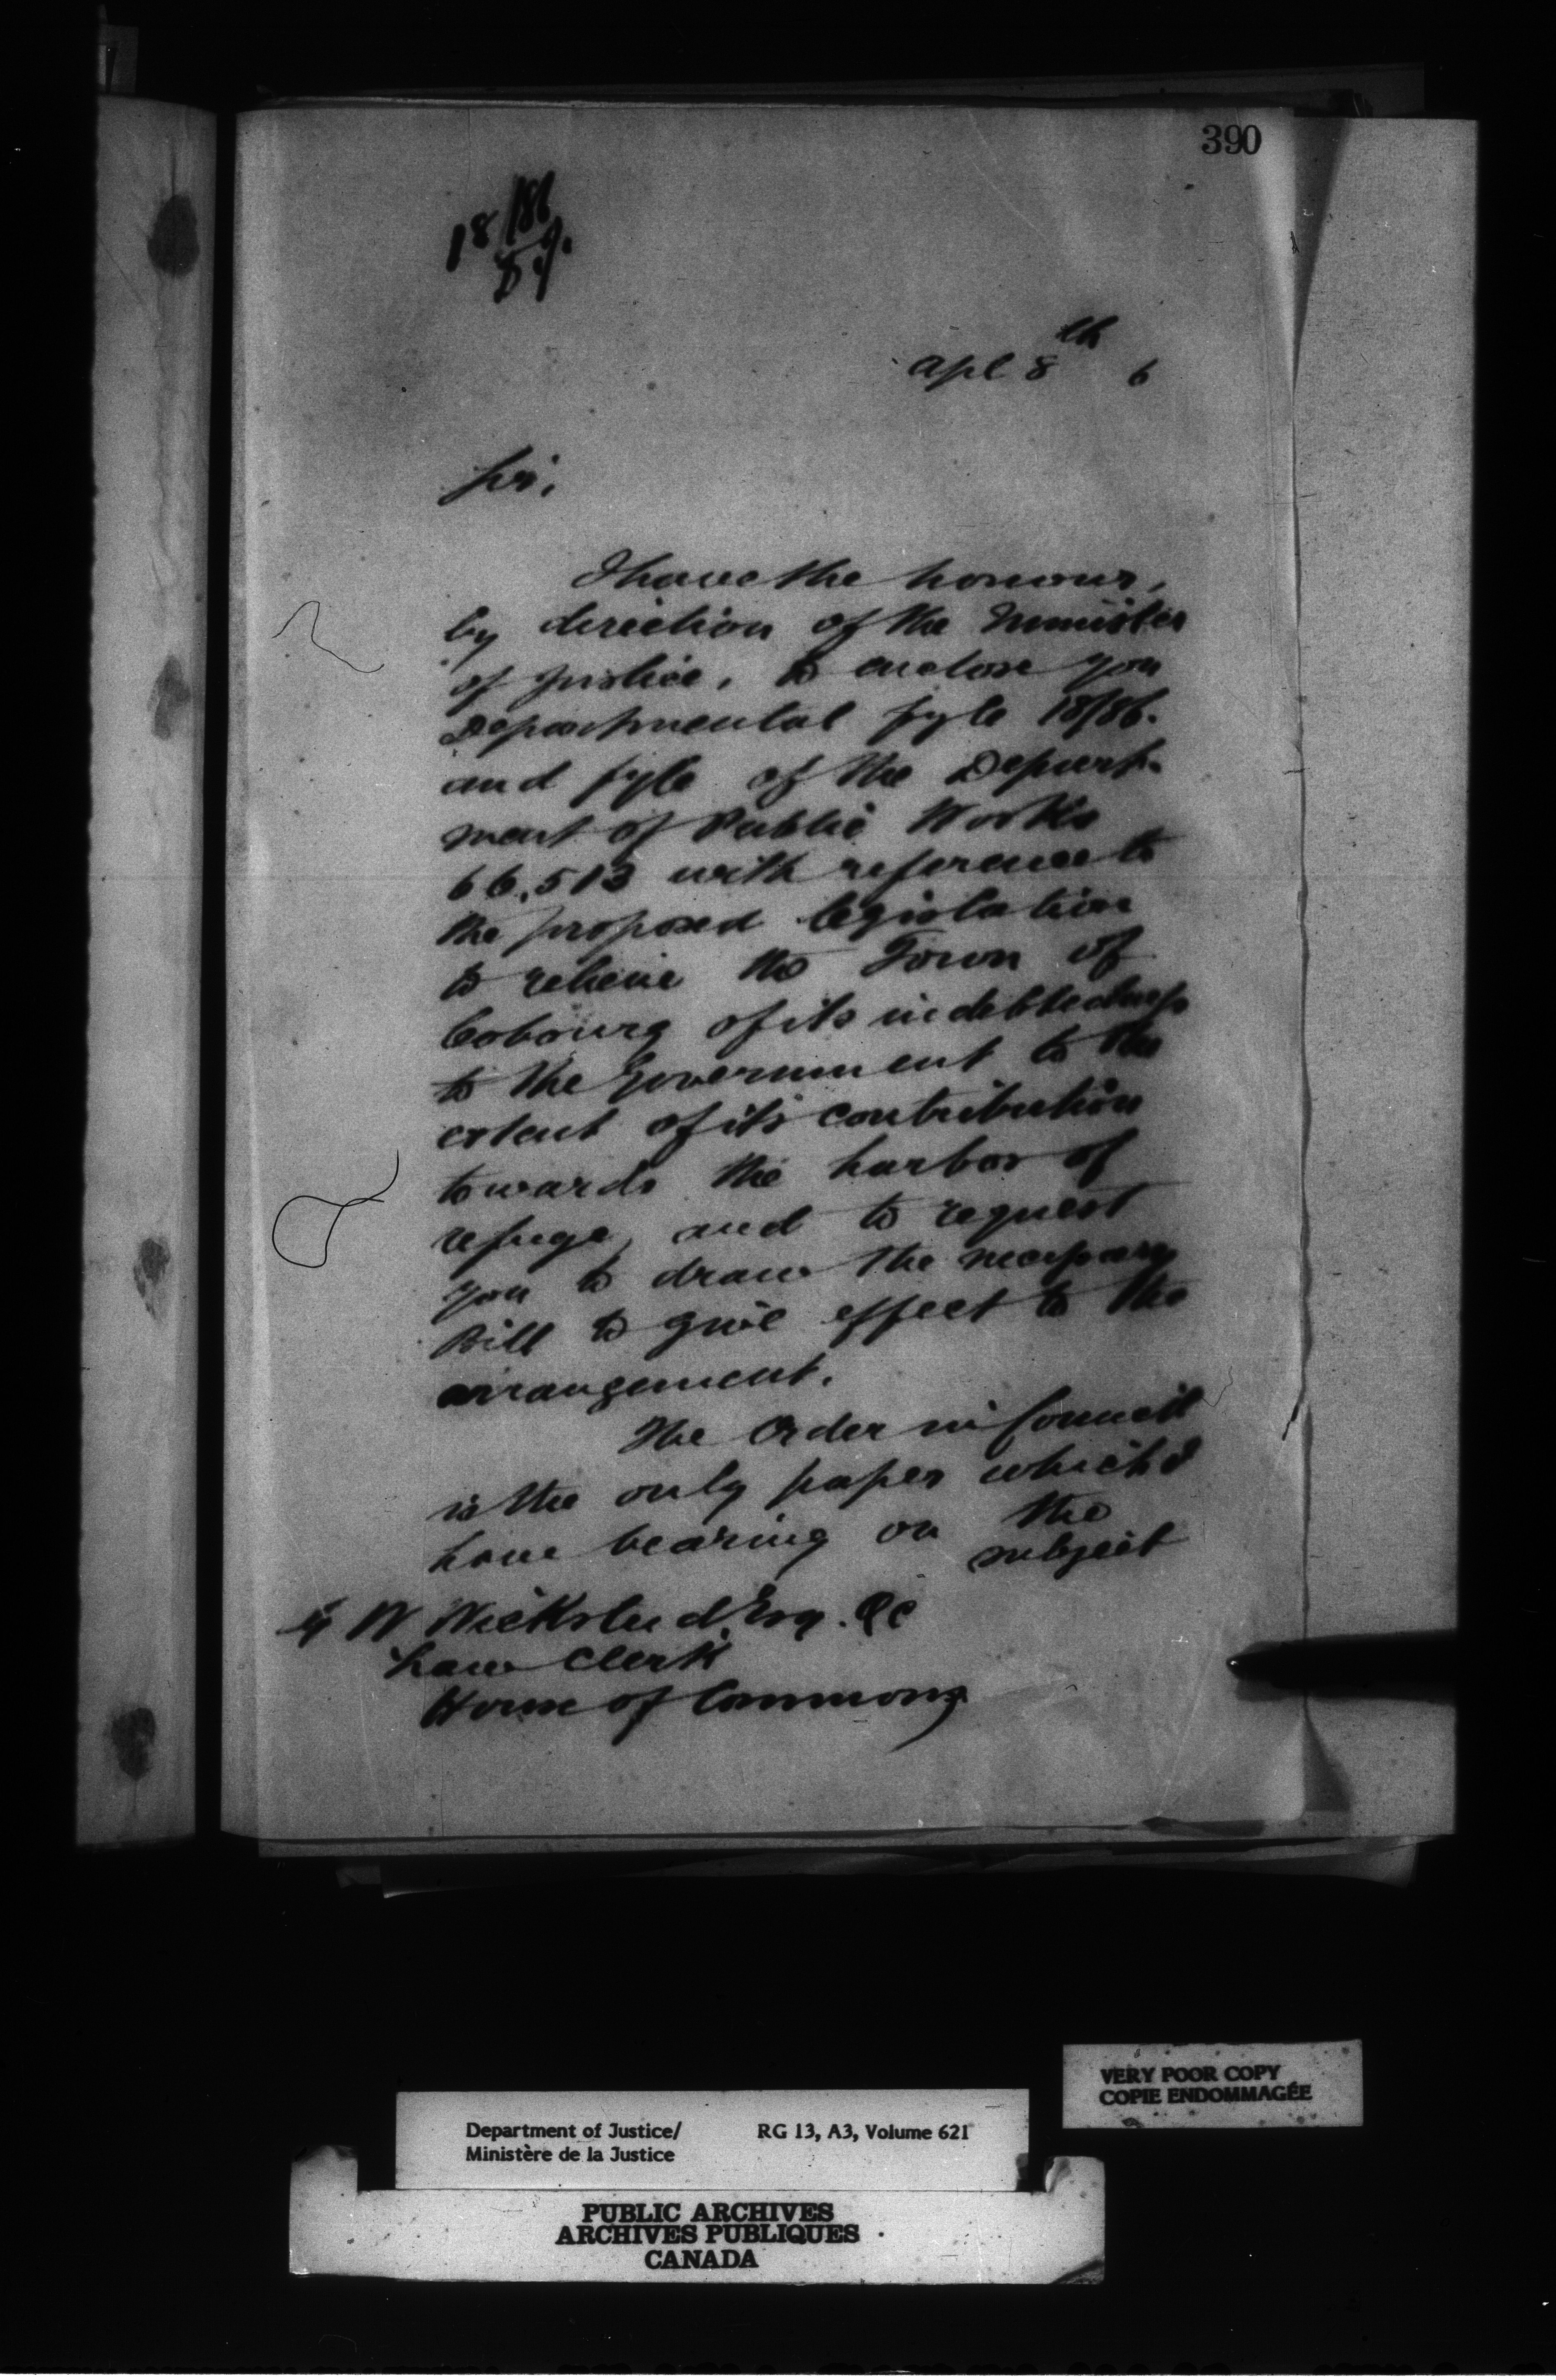 390
18/86
Apl 8th 6
Sir,
I have the honour,
by direction of the Minister
of Justice, to enclose you
Departmental fyle 18/86.
and fyle of the Depart-
ment of Public Works
66,513 with reference to
the proposed legislation
to relieve the Town of
Cobourg of its indebtedness
to the Government to the
extent of its contribution
towards the harbor of
refuge, and to request
you to draw the necessary
Bill to give effect to the
arrangement.
The Order in Council
is the only paper which I
have bearing on the
subject
G W Wicksteed Esq. QC
Law Clerk
House of Commons
VERY POOR COPY
COPIE ENDOMMAGÉE
Department of Justice/ RG 13, A3, Volume 621
Ministère de la Justice
PUBLIC ARCHIVES
ARCHIVES PUBLIQUES
CANADA